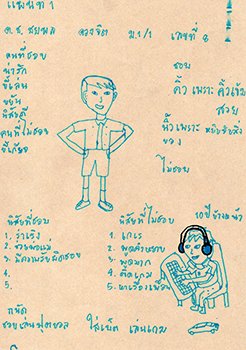 แผ่นที่ 1
ด.ช. ชยพล ดวงจิต ม.1/1 เลขที่ 8
คนที่ชอบ
น่ารัก
ขี้เล่น
ขยัน
นิสัยดี
คนที่ไม่ชอบ
ขี้เกียจ
ชอบ
คิ้ว เพราะ คิ้วเข้ม
สวย
นิ้ว เพราะ
ของ
ไม่ชอบ
นิสัยที่ชอบ
1. ร่าเริง
2. ช่วยพ่อแม่
3. มีความรับผิดชอบ
4.
5.
นิสัยที่ไม่ชอบ
1. เกเร
2. พูดคำหยาบ
3. พูดมาก
4. ติดเกม
5. หาเรื่องเพื่อน
10 ปีข้างหน้า
ถนัด
ชอบเล่นฟุตบอล
เล่นเกม